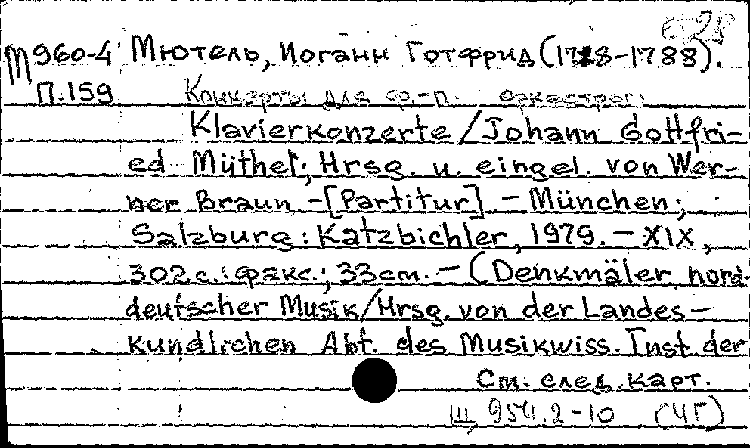 28
М 960-4 Мютель, Иоганн Готфрид (1728-1788).
П.159 Концерты для ф.-п. оркестра:
Klavierkonzerte / Johann Gottfri-
ed Müthel; Hrsg. u. eingel. von Wer-
ner Braun -[Partitur]. - München;
Salzburg: Katzbichler, 1979. - XIX,
302 с.: факс.; 33 cm. - (Denkmäler nord-
deutscher Musik / Hrsg. von der Landes-
kundlichen Abt. des Musikwiss. Inst. der
См. след. карт.
Щ 954.2-10 (ЧГ)